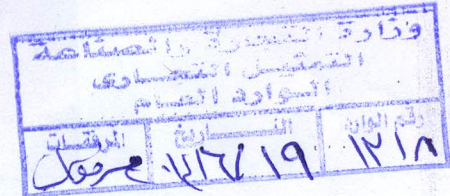 وزارة التجارة والصناعة
التمثيل التجارى
الوارد العام
رقم الوارد التـــاريخ المرفقــات
١٢١٨ ١٩